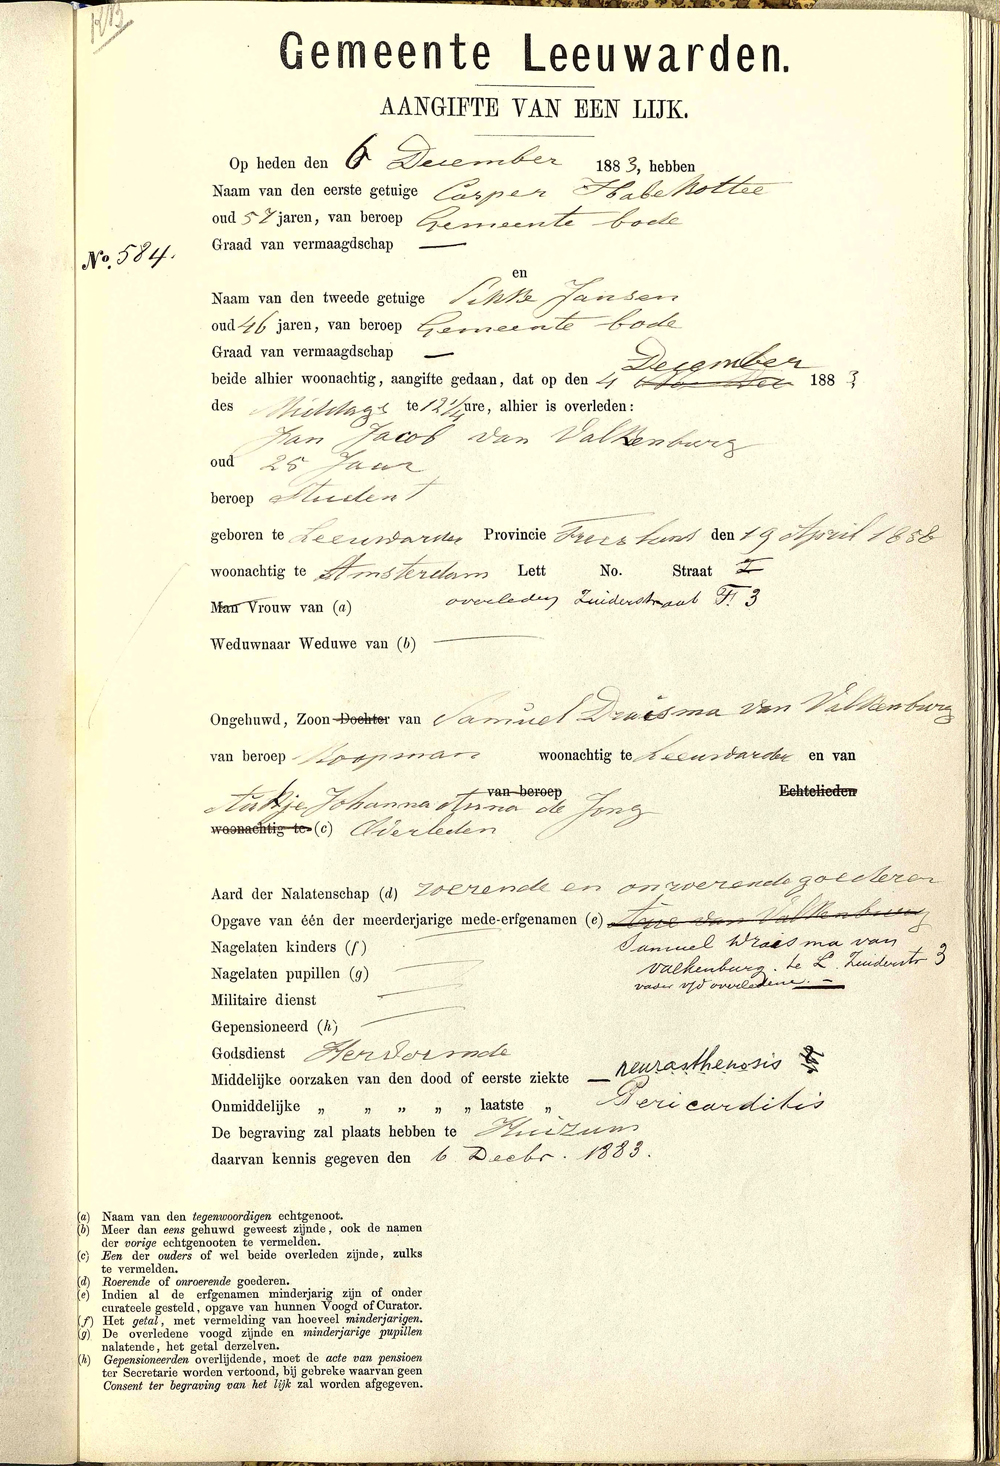 Gemeente Leeuwarden.
AANGIFTE VAN EEN LIJK.
Op heden den 6 December 1883, hebben
Naam van den eerste getuige Casper Habekottee
oud 57 jaren, van beroep Gemeente bode
Graad van vermaagdschap —
No. 584.
en
Naam van den tweede getuige Sikke Jansen
oud 46 jaren, van beroep Gemeente bode
Graad van vermaagdschap —
December
beide alhier woonachtig, aangifte gedaan, dat op den 4 1883
des Middags te 12 1/4 ure, alhier is overleden:
Jan Jacob van Valkenburg
oud 25 Jaar
beroep Student
geboren te Leeuwarden Provincie Friesland den 19 April 1858
woonachtig te Amsterdam Lett No. Straat
Man Vrouw van (a) overleden Zuiderstraat F. 3
Weduwnaar Weduwe van (b) —
Ongehuwd, Zoon Dochter van Samuel Draisma van Valkenburg
van beroep Koopman woonachtig te Leeuwarden en van
van beroep Echtelieden
Aukje Johanna Anna de Jong
woonachtig te (c) Overleden
Aard der Nalatenschap (d) roerende en onroerende goederen
Opgave van één der meerderjarige mede-erfgenamen (e) van Valkenburg
Nagelaten kinders (f) — Samuel Draisma van
Valkenburg. te L. Zuiderstr 3
Nagelaten pupillen (g) —
vader v/d overledene. —
Militaire dienst —
Gepensioneerd (h) —
Godsdienst Hervormde
Middelijke oorzaken van den dood of eerste ziekte — neurasthenosis
Onmiddelijke „ „ „ „ „ laatste „ Pericarditis
De begraving zal plaats hebben te Huizum
daarvan kennis gegeven den 6 Decbr. 1883.
(a) Naam van den tegenwoordigen echtgenoot.
(b) Meer dan eens gehuwd geweest zijnde, ook de namen
der vorige echtgenooten te vermelden.
(c) Een der ouders of wel beide overleden zijnde, zulks
te vermelden.
(d) Roerende of onroerende goederen.
(e) Indien al de erfgenamen minderjarig zijn of onder
curateele gesteld, opgave van hunnen Voogd of Curator.
(f) Het getal, met vermelding van hoeveel minderjarigen.
(g) De overledene voogd zijnde en minderjarige pupillen
nalatende, het getal derzelven.
(h) Gepensioneerden overlijdende, moet de acte van pensioen
ter Secretarie worden vertoond, bij gebreke waarvan geen
Consent ter begraving van het lijk zal worden afgegeven.